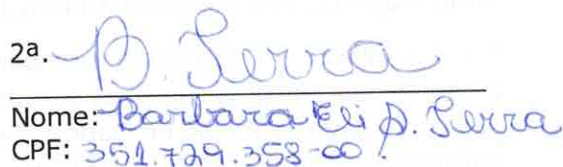 2ª. B. Serra
Nome: Barbara Eli S. Serra
CPF: 351.729.358-00.